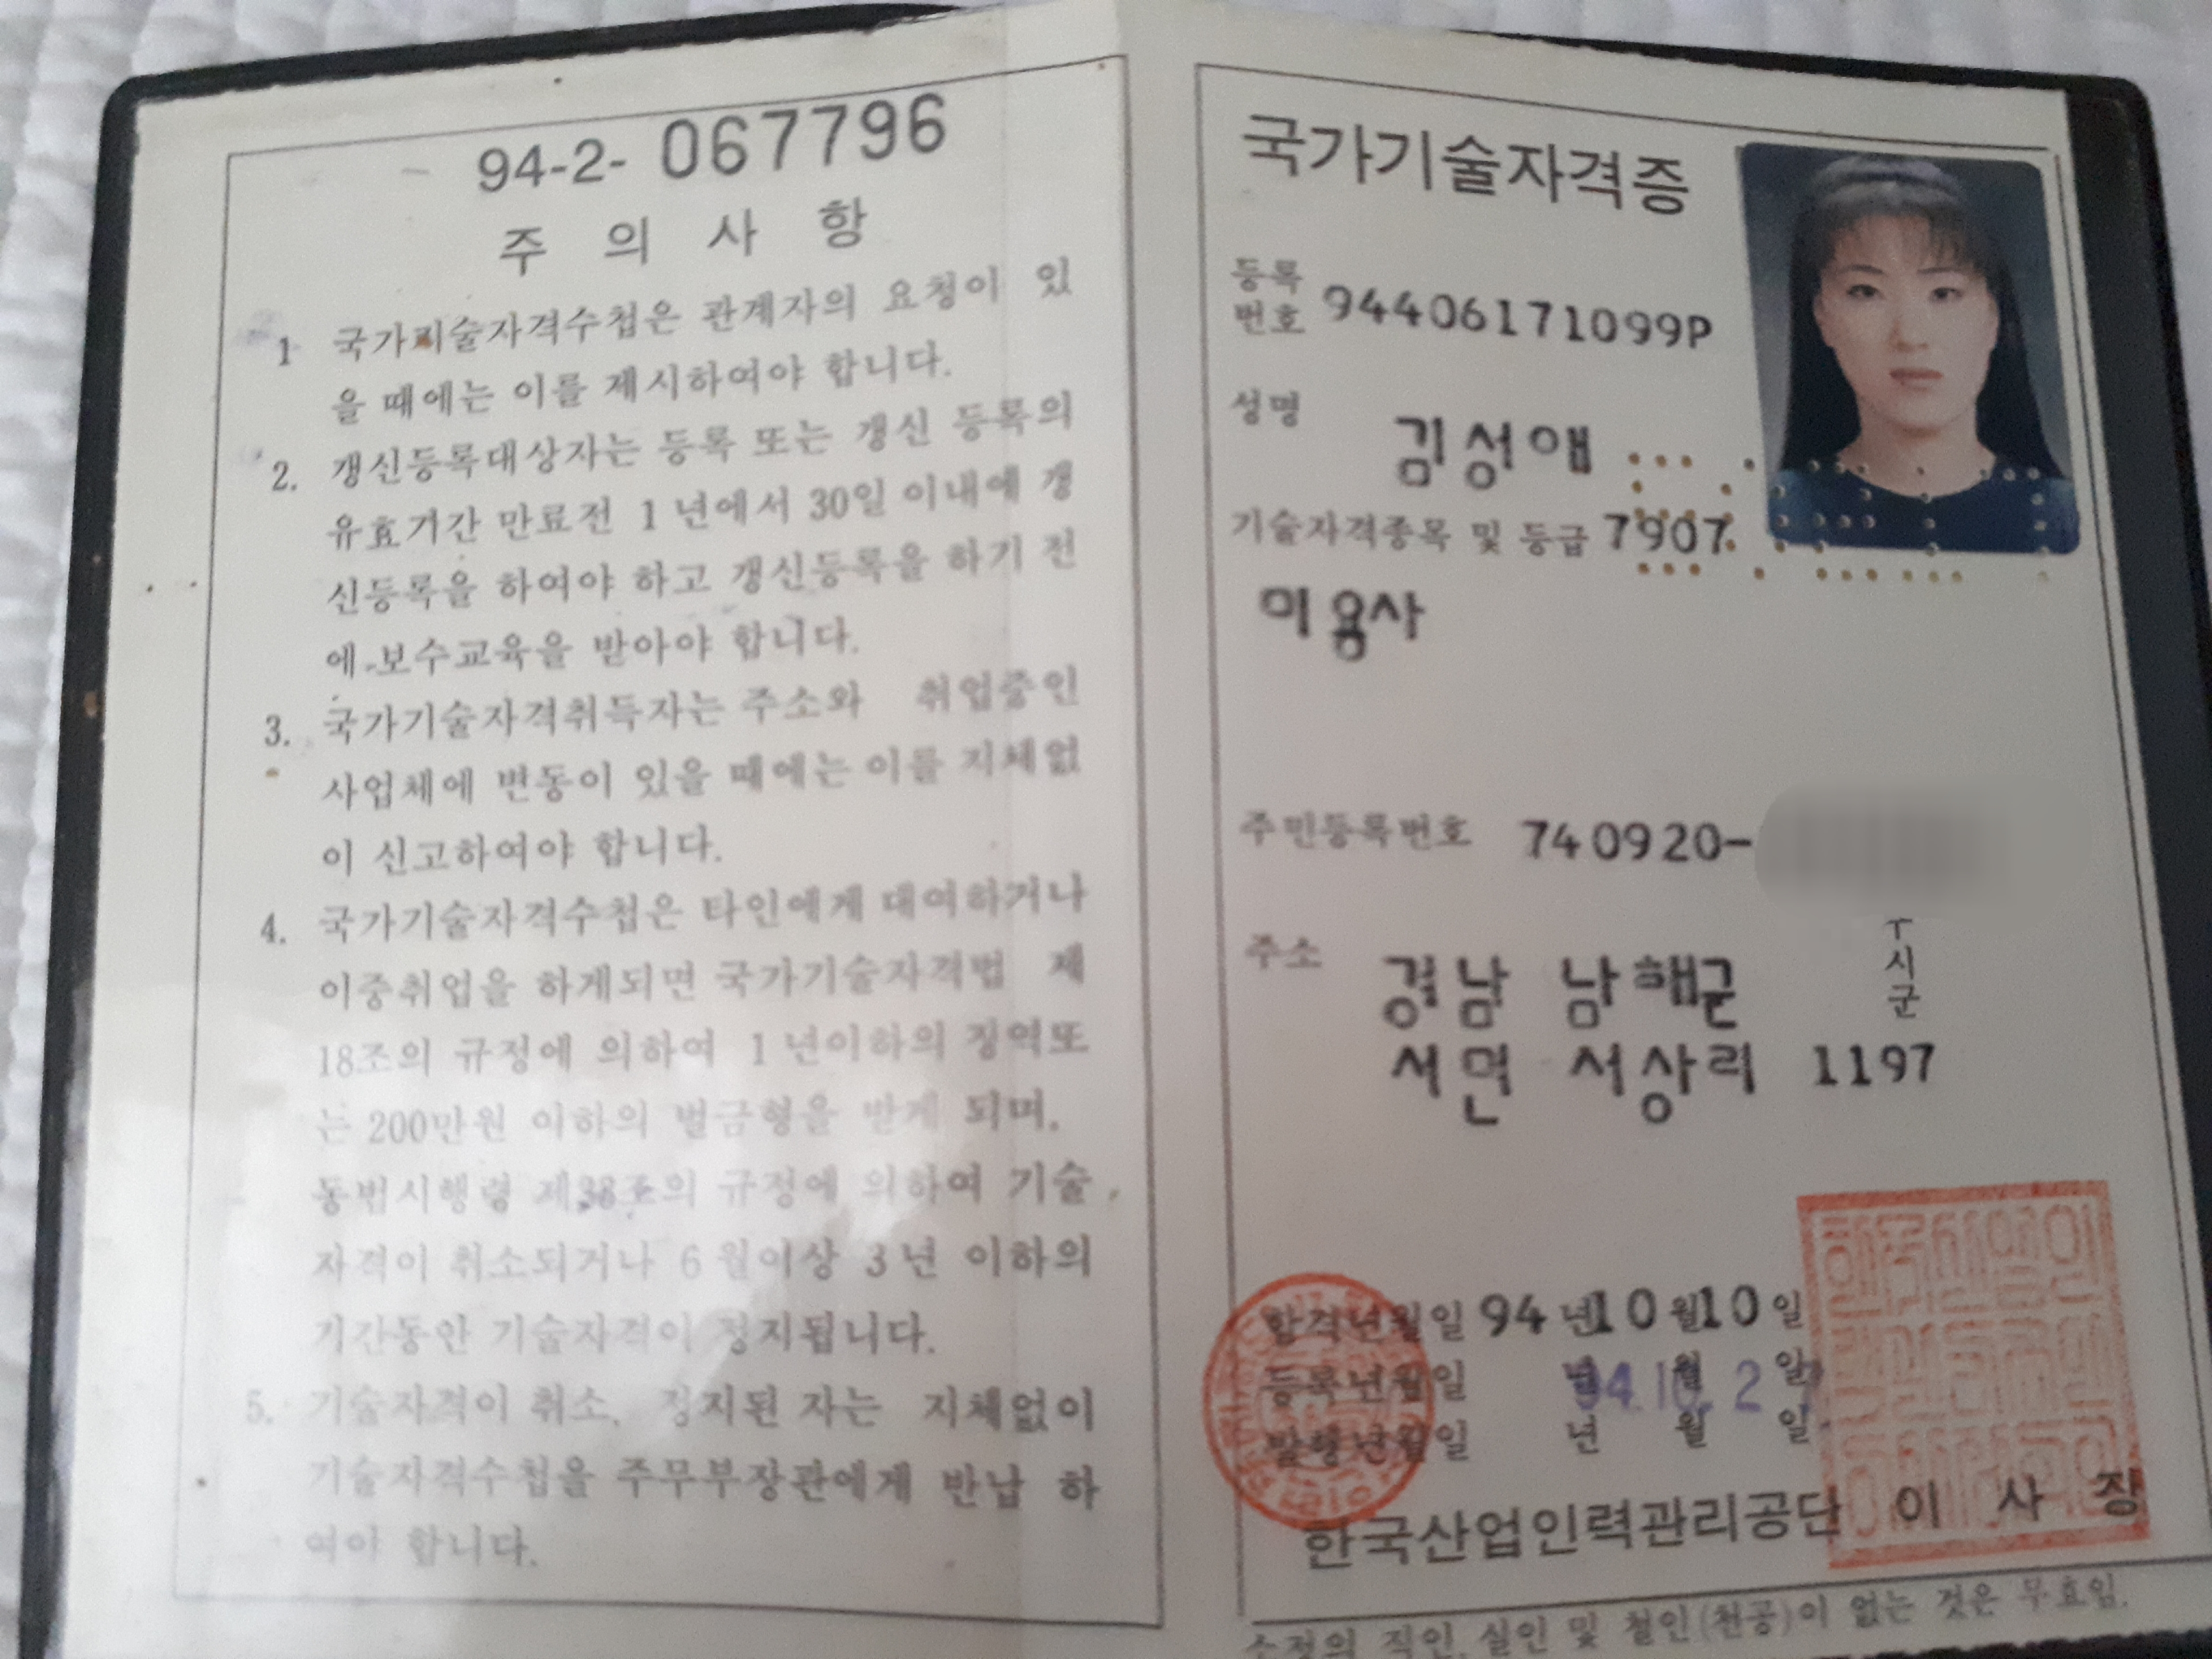 94-2- 067796
주 의 사 항
1 국가기술자격수첩은 관계자의 요청이 있
을 때에는 이를 제시하여야 합니다.
2. 갱신등록대상자는 등록 또는 갱신 등록의
유효기간 만료전 1년에서 30일 이내에 갱
신등록을 하여야 하고 갱신등록을 하기 전
에 보수교육을 받아야 합니다.
3. 국가기술자격취득자는 주소와 취업중인
사업체에 변동이 있을 때에는 이를 지체없
이 신고하여야 합니다.
4. 국가기술자격수첩은 타인에게 대여하거나
이중취업을 하게되면 국가기술자격법 제
18조의 규정에 의하여 1년이하의 징역또
는 200만원 이하의 벌금형을 받게 되며,
동법시행령 제38조의 규정에 의하여 기술
자격이 취소되거나 6월이상 3년 이하의
기간동안 기술자격이 정지됩니다.
5. 기술자격이 취소, 정지된 자는 지체없이
기술자격수첩을 주무부장관에게 반납 하
여야 합니다.
국가기술자격증
등록
번호 94406171099P
성명 김성애
기술자격종목 및 등급 7907
미용사
주민등록번호 740920-
시
군
주소 경남 남해군
서면 서상리 1197
합격년월일 94년10월10일
등록년월일 년 월 일
94.10.2
발행년월일 년 월 일
한국산업인력관리공단 이 사 장
소정의 직인, 실인 및 철인(천공)이 없는 것은 무효임.